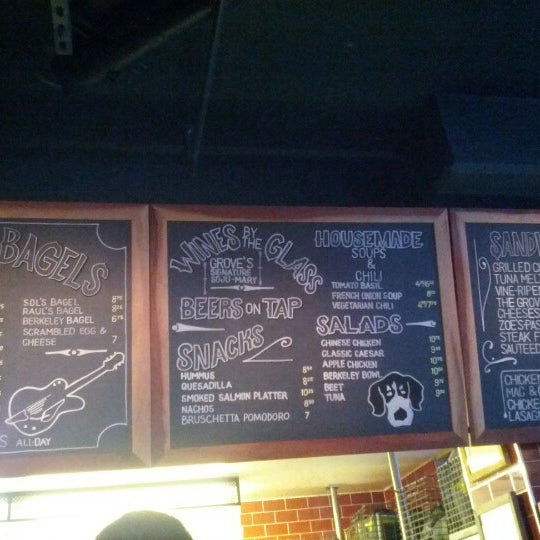 BAGELS
SOL'S BAGEL
RAUL'S BAGEL
BERKELEY BAGEL
SCRAMBLED EGG &
CHEESE 7
ALL-DAY
WINES BY THE GLASS
GROVE'S
SIGNATURE
SOJU-MARY
BEERS ON TAP
SNACKS
HUMMUS
QUESADILLA
SMOKED SALMON PLATTER
NACHOS
BRUSCHETTA POMODORO 7
HOUSEMADE
SOUPS
&
CHILI
TOMATO BASIL
FRENCH ONION SOUP
VEGETARIAN CHILI
SALADS
CHINESE CHICKEN
CLASSIC CAESAR
APPLE CHICKEN
BERKELEY BOWL
BEET
TUNA
SAND
GRILLED C
TUNA MEL
VINE-RIPE
THE GROV
CHEESES
ZOE'S-PAS
STEAK F
SAUTEED
CHICKEN
MAC &
CHICKE
LASAG